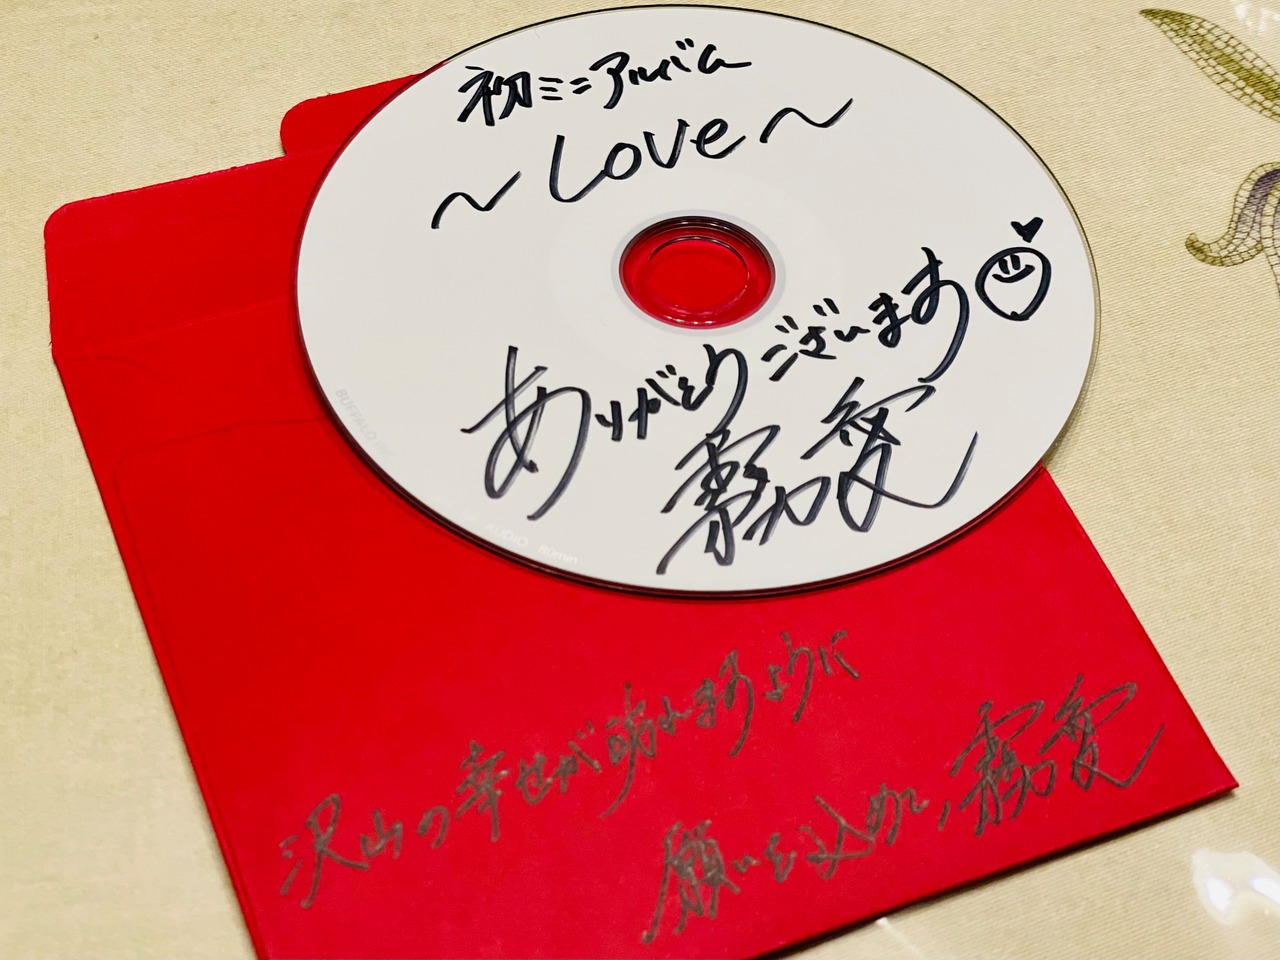 初ミニアルバム
～Love～
ありがとうございます
霧愛
BUFFALO INC.
AUDIO 80min
沢山の幸せが訪れますように
願いを込めて、霧愛